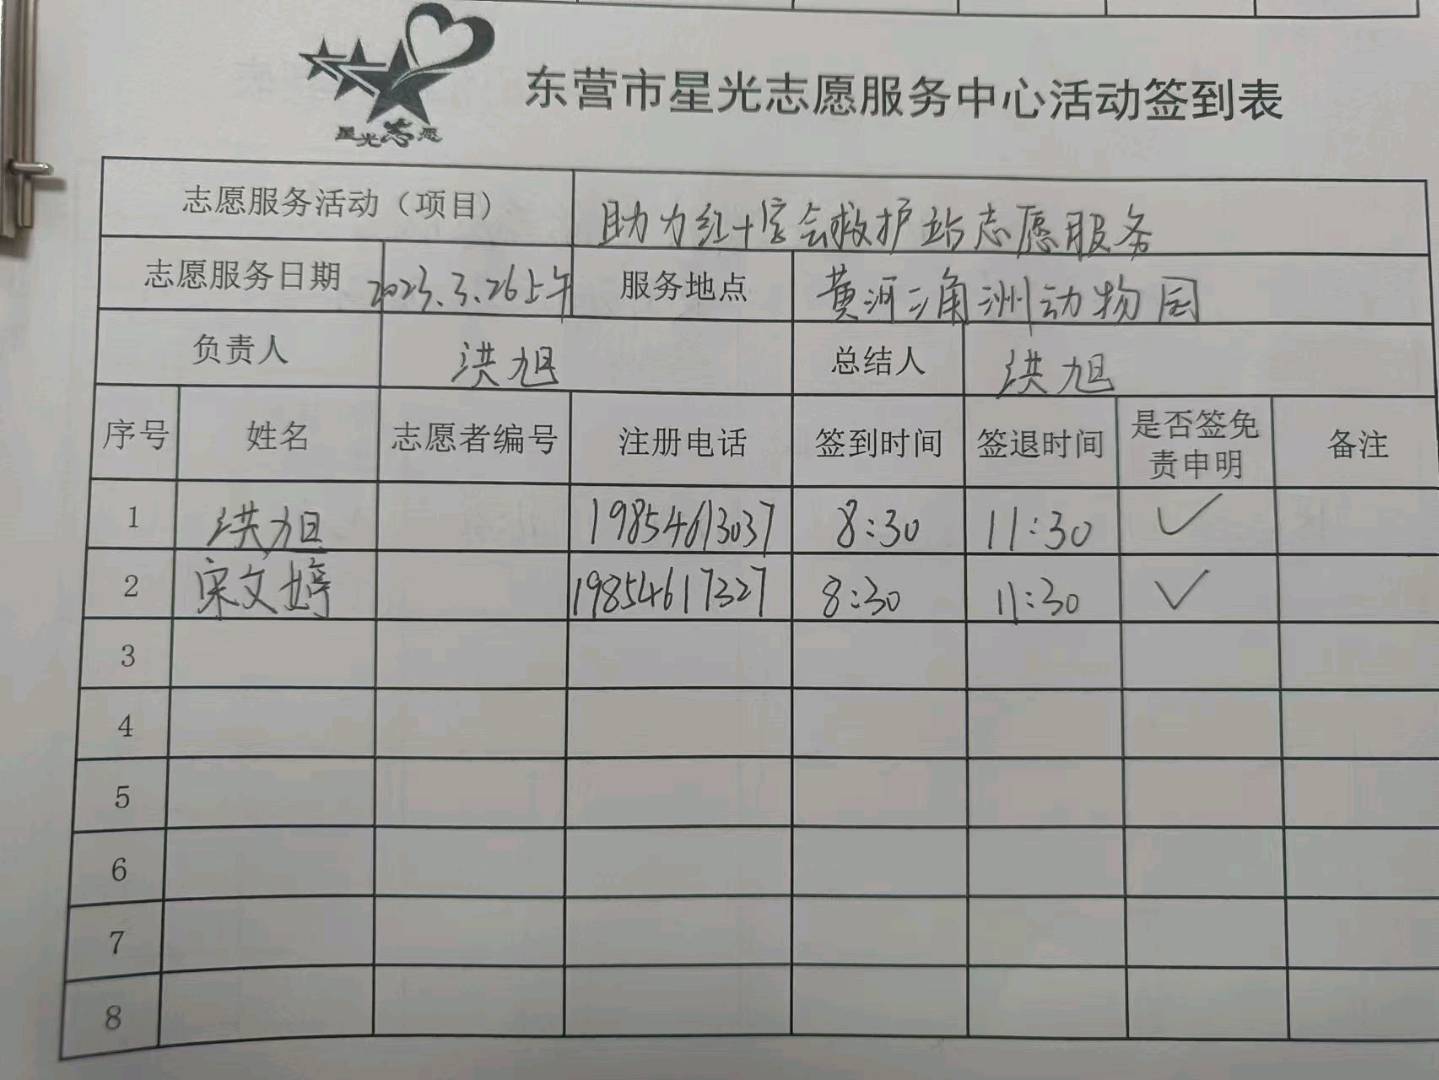 星光志愿
东营市星光志愿服务中心活动签到表
志愿服务活动（项目） 助力红十字会救护站志愿服务
志愿服务日期 2023.3.26上午 服务地点 黄河三角洲动物园
负责人 洪旭 总结人 洪旭
序号 姓名 志愿者编号 注册电话 签到时间 签退时间 是否签免责申明 备注
1 洪旭 19854613037 8:30 11:30 ✓
2 宋文婷 19854617327 8:30 11:30 ✓
3
4
5
6
7
8